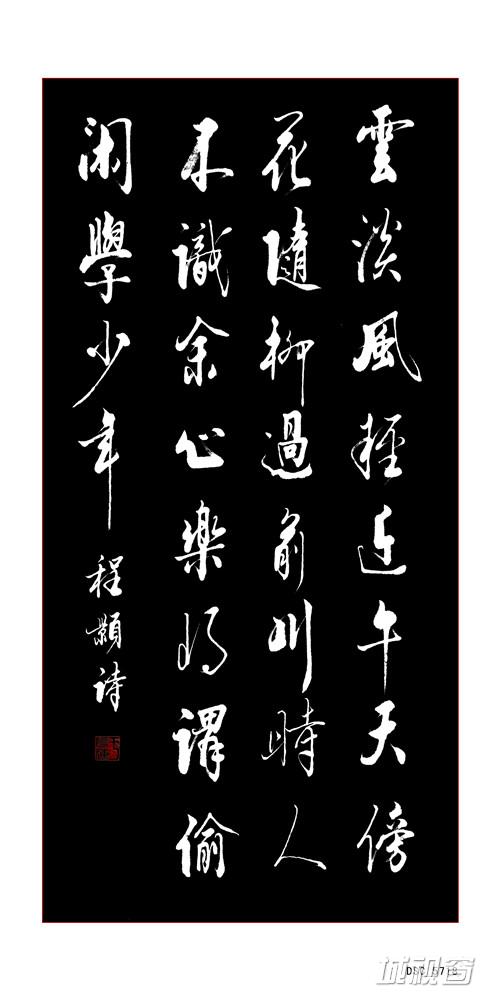 雲淡風輕近午天傍
花隨柳過前川時人
不識余心樂將謂偷
閑學少年
程顥詩
城视窗